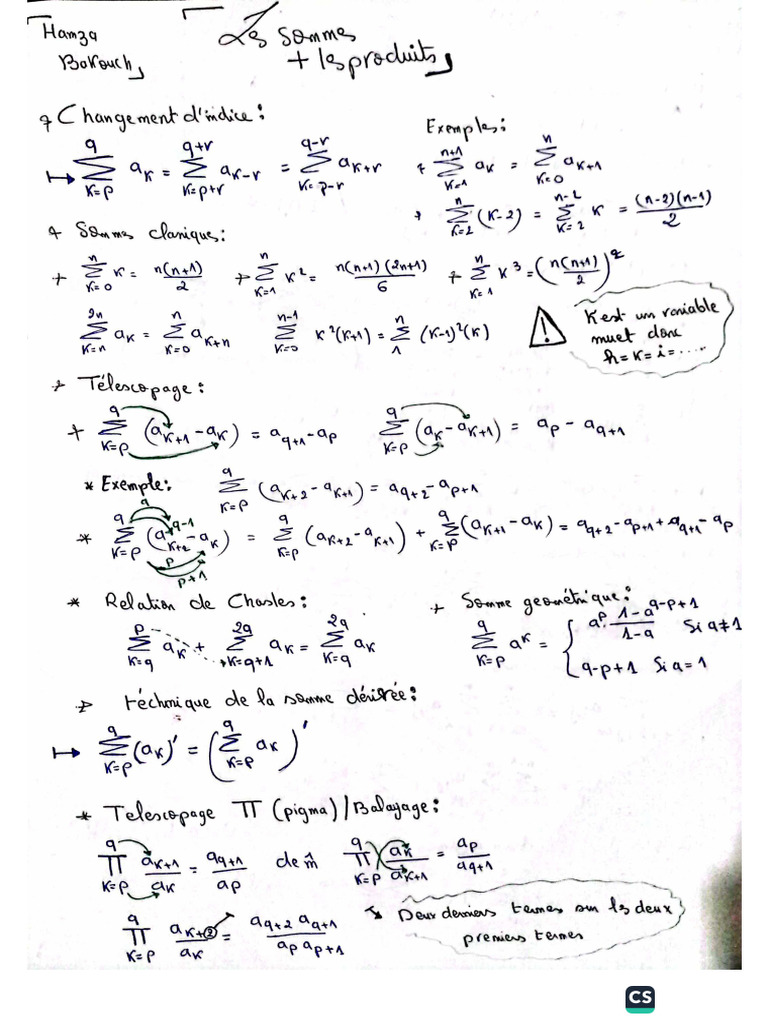 Hamza
Barouch
Les sommes
+ les produits
Changement d'indice :
Exemples :
∑_{K=p}^{q} a_K = ∑_{K=p+r}^{q+r} a_{K-r} = ∑_{K=p-r}^{q-r} a_{K+r}
+ ∑_{K=1}^{n+1} a_K = ∑_{K=0}^{n} a_{K+1}
+ ∑_{K=2}^{n} (K-2) = ∑_{K=2}^{n-2} K = (n-2)(n-1)/2
+ Sommes classiques :
+ ∑_{K=0}^{n} K = n(n+1)/2 + ∑_{K=1}^{n} K² = n(n+1)(2n+1)/6 + ∑_{K=1}^{n} K³ = (n(n+1)/2)²
∑_{K=n}^{2n} a_K = ∑_{K=0}^{n} a_{K+n} ∑_{K=0}^{n-1} K²(K+1) = ∑_{1}^{n} (K-1)²(K)
! K est un variable
muet donc
h = K = i = ....
+ Télescopage :
+ ∑_{K=p}^{q} (a_{K+1} - a_K) = a_{q+1} - a_p ∑_{K=p}^{q} (a_K - a_{K+1}) = a_p - a_{q+1}
* Exemple : ∑_{K=p}^{q} (a_{K+2} - a_{K+1}) = a_{q+2} - a_{p+1}
q
q-1
* ∑_{K=p}^{q} (a_{K+2} - a_K) = ∑_{K=p}^{q} (a_{K+2} - a_{K+1}) + ∑_{K=p}^{q} (a_{K+1} - a_K) = a_{q+2} - a_{p+1} + a_{q+1} - a_p
p
p+1
* Relation de Chasles :
∑_{K=q}^{p} a_K + ∑_{K=q+1}^{2q} a_K = ∑_{K=q}^{2q} a_K
+ Somme geométrique :
∑_{K=p}^{q} a^K = { a^p · (1-a^{q-p+1})/(1-a) Si a≠1
q-p+1 Si a=1
téchnique de la somme dérivée :
∑_{K=p}^{q} (a_K)' = (∑_{K=p}^{q} a_K)'
* Telescopage ∏ (pigma) / Balayage :
∏_{K=p}^{q} a_{K+1}/a_K = a_{q+1}/a_p de m̂ ∏_{K=p}^{q} a_K/a_{K+1} = a_p/a_{q+1}
∏_{K=p}^{q} a_{K+2}/a_K = a_{q+2} a_{q+1}/a_p a_{p+1}
Deux derniers termes sur les deux
premiers termes
CS